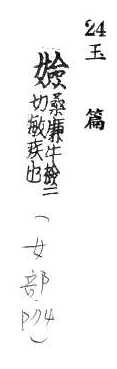 24
玉篇
嬐 桑廉牛檢二
切敏疾也
(女部
P74)